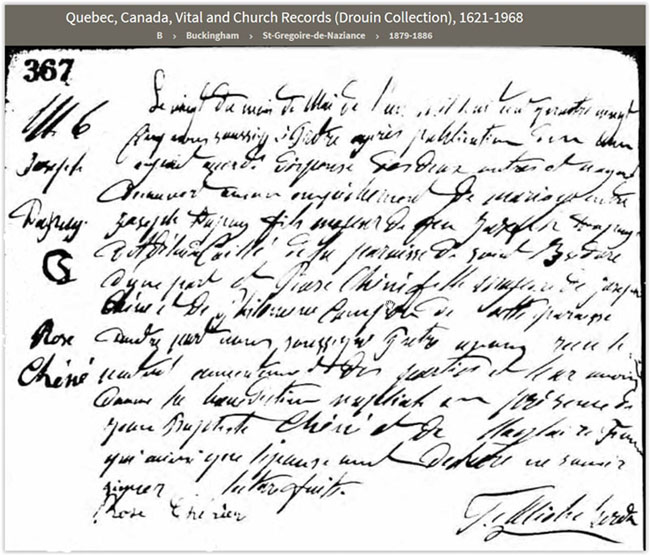 Quebec, Canada, Vital and Church Records (Drouin Collection), 1621-1968
B > Buckingham > St-Gregoire-de-Naziance > 1879-1886
367
M 6
Joseph
Dupuy
&
Rose
Chéné
Le vingt du mois de Mai de l'an mil huit cent quatre vingt
cinq nous soussigné Prêtre après publication d'un ban
ayant accordé dispense des deux autres et n'ayant
découvert aucun empêchement de mariage entre
Joseph Dupuy fils majeur de feu Joseph Dupuy
et de la paroisse de saint Isidore
d'une part et Rose Chéné fille mineure de Joseph
Chéné et de Philomène de cette paroisse
d'autre part nous soussigné Prêtre avons reçu le
mutuel consentement des parties et leur avons
donné la bénédiction nuptiale en présence de
Jean Baptiste Chéné et de
qui ainsi que l'épouse ont déclaré ne savoir
signer lecture faite.
Rose Chénier